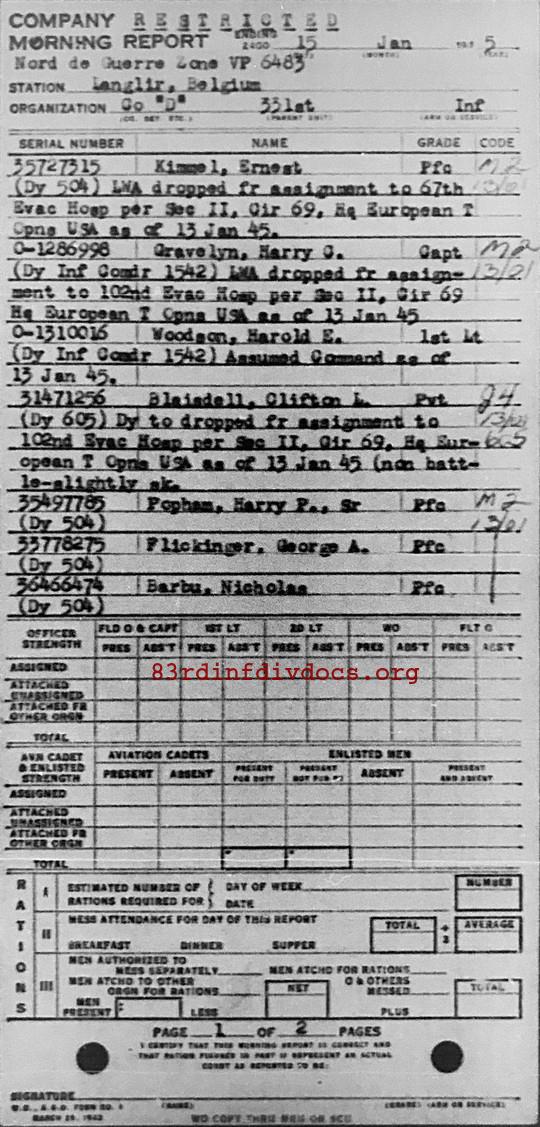 COMPANY RESTRICTED
MORNING REPORT ENDING 2400 15 Jan 194 5
(DAY) (MONTH) (YEAR)
Nord de Guerre Zone VP 6483
STATION Langlir, Belgium
ORGANIZATION Co "D" 331st Inf
(CO. DET. ETC.) (PARENT UNIT) (ARM OR SERVICE)
SERIAL NUMBER NAME GRADE CODE
35727315 Kimmel, Ernest Pfc M2
(Dy 504) LWA dropped fr assignment to 67th 13/01
Evac Hosp per Sec II, Cir 69, Hq European T
Opns USA as of 13 Jan 45.
O-1286998 Gravelyn, Harry C. Capt M2
(Dy Inf Comdr 1542) LWA dropped fr assign- 13/21
ment to 102nd Evac Hosp per Sec II, Cir 69
Hq European T Opns USA as of 13 Jan 45
O-1310016 Woodson, Harold E. 1st Lt
(Dy Inf Comdr 1542) Assumed Command as of
13 Jan 45.
31471256 Blaisdell, Clifton L. Pvt
(Dy 605) Dy to dropped fr assignment to
102nd Evac Hosp per Sec II, Cir 69, Hq Eur-
opean T Opns USA as of 13 Jan 45 (non batt-
le-slightly sk.
35497785 Popham, Harry P., Sr Pfc M2
(Dy 504) 13/01
33778275 Flickinger, George A. Pfc
(Dy 504)
36466474 Barbu, Nicholas Pfc
(Dy 504)
OFFICER STRENGTH FLD O & CAPT 1ST LT 2D LT WO FLT O
PRES ABS'T PRES ABS'T PRES ABS'T PRES ABS'T PRES ABS'T
ASSIGNED
83rdinfdivdocs.org
ATTACHED UNASSIGNED
ATTACHED FR OTHER ORGN
TOTAL
AVN CADET & ENLISTED STRENGTH AVIATION CADETS ENLISTED MEN
PRESENT ABSENT PRESENT FOR DUTY PRESENT NOT FOR DUTY ABSENT PRESENT AND ABSENT
ASSIGNED
ATTACHED UNASSIGNED
ATTACHED FR OTHER ORGN
TOTAL
RATIONS
I ESTIMATED NUMBER OF RATIONS REQUIRED FOR DAY OF WEEK DATE NUMBER
II MESS ATTENDANCE FOR DAY OF THIS REPORT TOTAL ÷ 3 AVERAGE
BREAKFAST DINNER SUPPER
III MEN AUTHORIZED TO MESS SEPARATELY MEN ATCHD FOR RATIONS
MEN ATCHD TO OTHER ORGN FOR RATIONS NET O & OTHERS MESSED TOTAL
MEN PRESENT LESS PLUS
PAGE 1 OF 2 PAGES
I CERTIFY THAT THIS MORNING REPORT IS CORRECT AND
THAT RATION FIGURES IN PART II REPRESENT AN ACTUAL
COUNT AS REPORTED TO ME:
SIGNATURE
W.D., A.G.O. FORM NO. 1 (NAME) (GRADE) (ARM OR SERVICE)
MARCH 29, 1943
WD COPY THRU MRU OR SCU